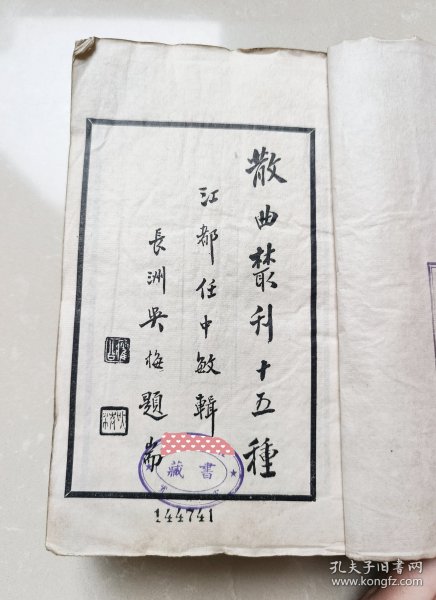 散曲叢刋十五種
江都任中敏輯
長洲吳梅題耑
藏書
1444741
孔夫子旧书网
www.kongfz.com